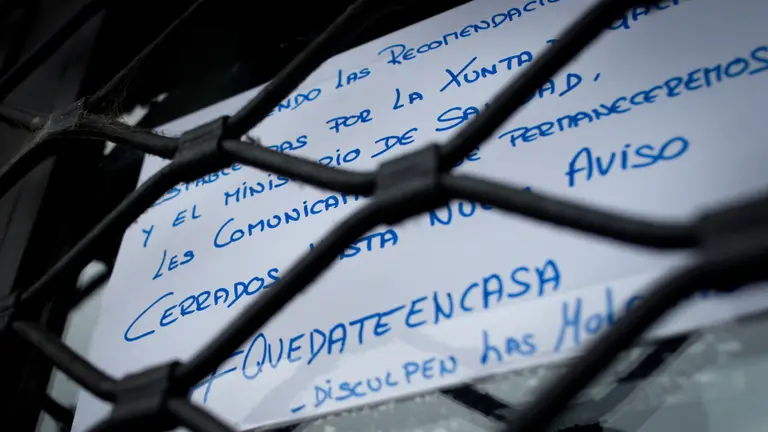 LAS RECOMENDACIO
POR LA XUNTA
Y EL MINISTERIO DE SANIDAD,
LES COMUNICAM PERMANECEREMOS
CERRADOS HASTA AVISO
#QUEDATEENCASA
- DISCULPEN LAS